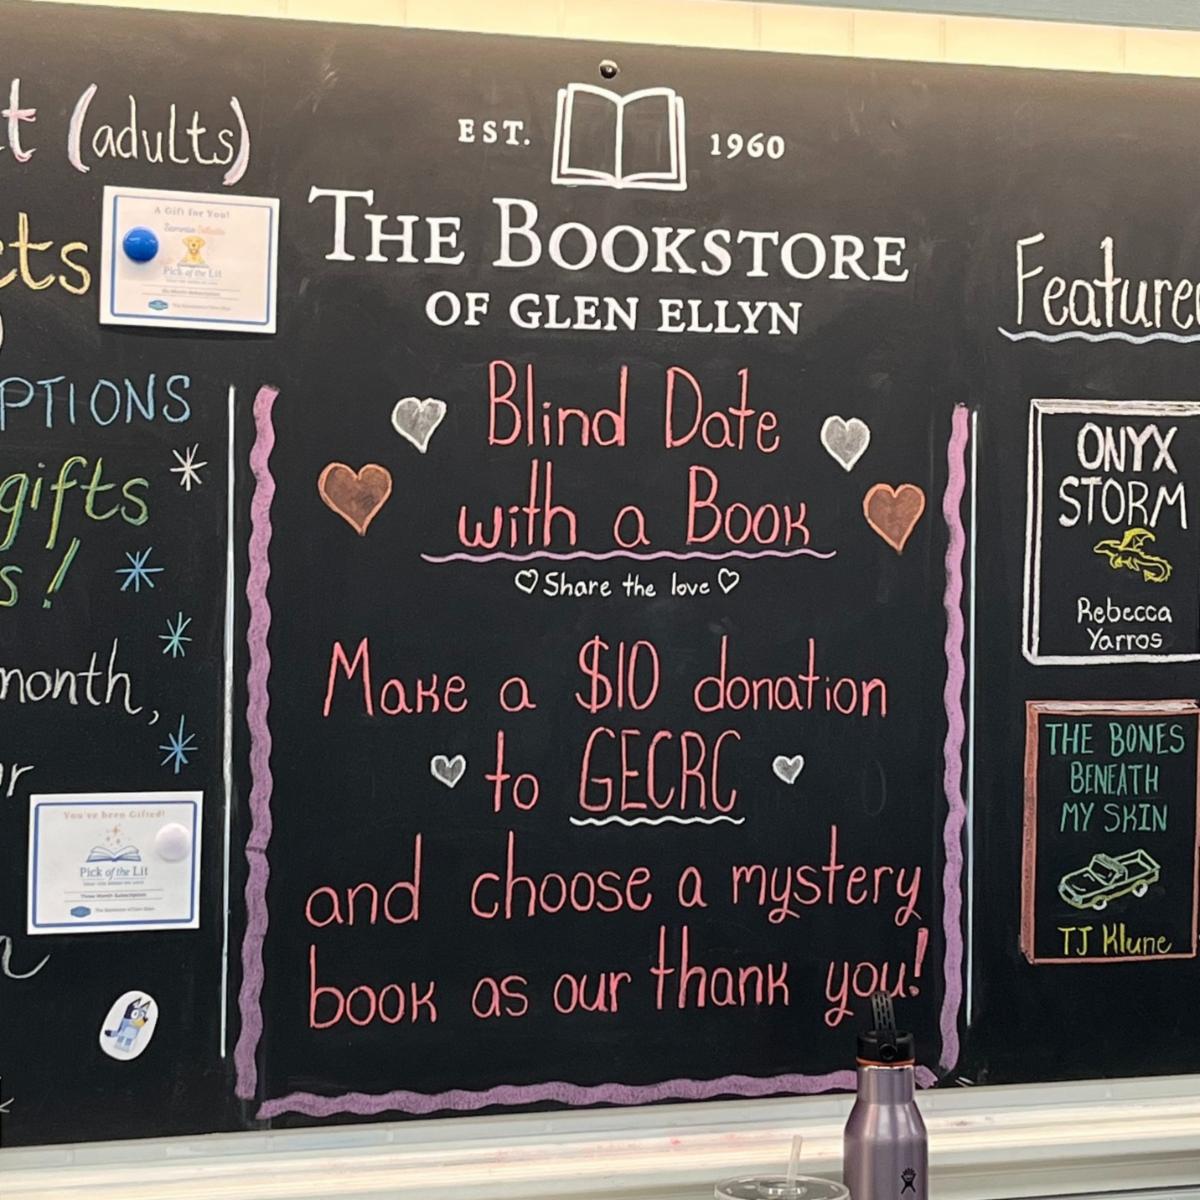 t (adults)
cts
A Gift for You!
Pick of the Lit
PTIONS
gifts
s!
month,
r
You've been Gifted!
Pick of the Lit
Three Month Subscription
EST. 1960
THE BOOKSTORE
OF GLEN ELLYN
Blind Date
with a Book
Share the love
Make a $10 donation
to GECRC
and choose a mystery
book as our thank you!
Feature
ONYX
STORM
Rebecca
Yarros
THE BONES
BENEATH
MY SKIN
TJ Klune